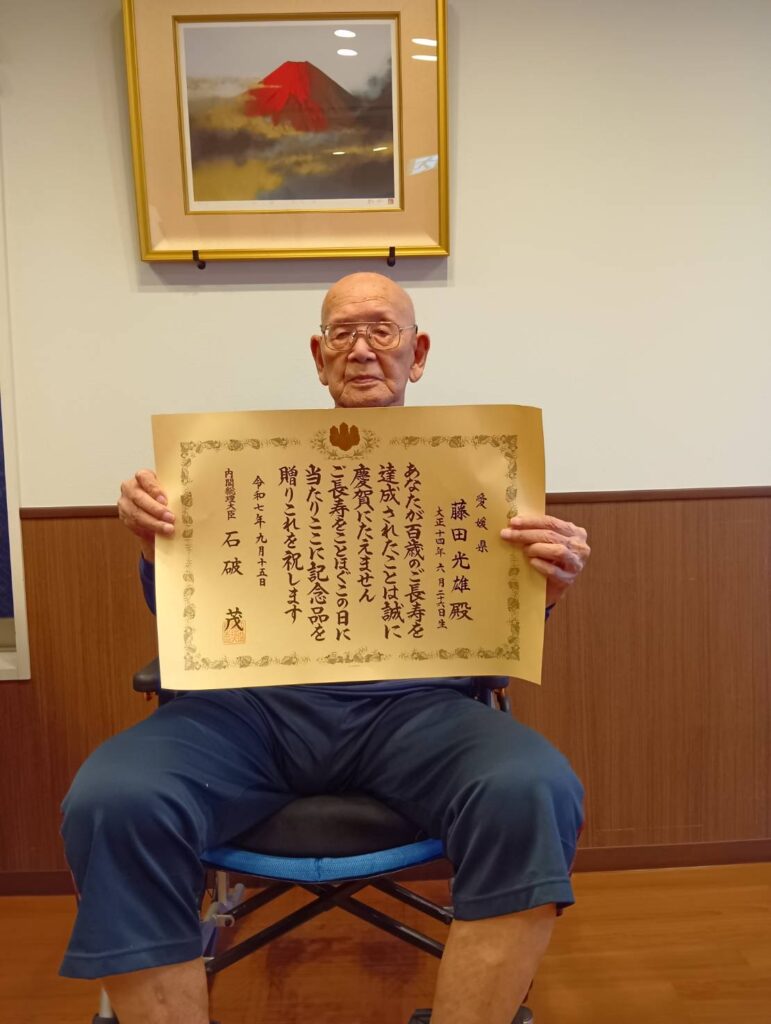 愛媛県
藤田光雄殿
大正十四年六月二十六日生
あなたが百歳のご長寿を
達成されたことは誠に
慶賀にたえません
ご長寿をことほぐこの日に
当たりここに記念品を
贈りこれを祝します
令和七年九月十五日
内閣総理大臣 石破 茂